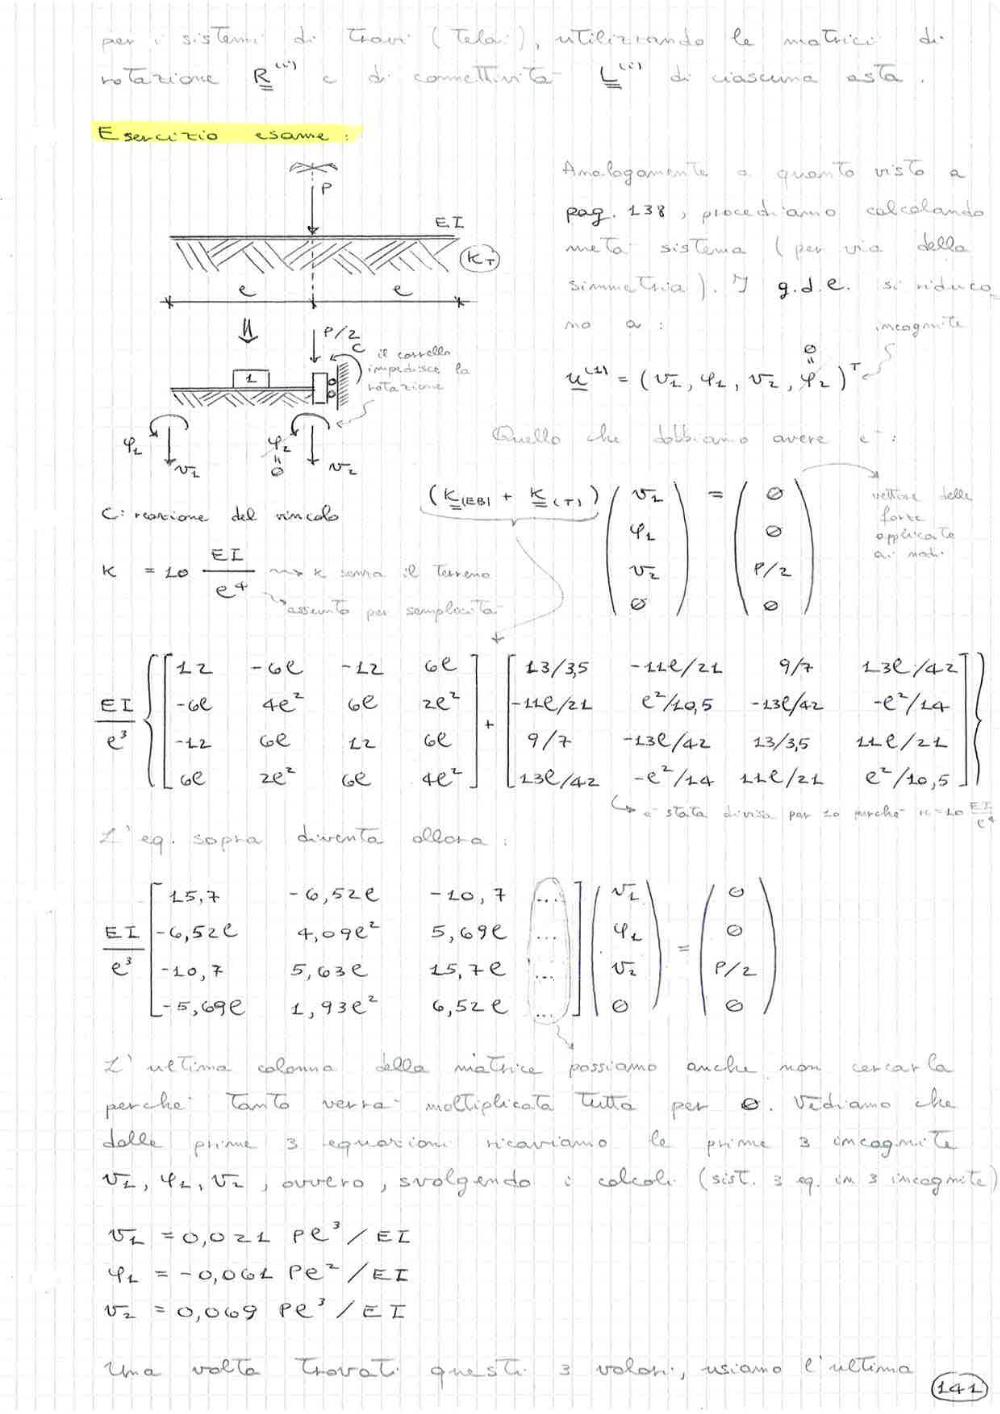 per i sistemi di travi (telai), utilizzando le matrici di
rotazione R⁽ⁱ⁾ e di connettività L⁽ⁱ⁾ di ciascuna asta.
Esercizio esame:
P
EI
K_T
e e
P/2
C
il carrello
impedisce la
rotazione
1
φ₁ v₁ φ₂ = 0 v₂
C: reazione del vincolo
Analogamente a quanto visto a
pag. 138, procediamo calcolando
metà sistema (per via della
simmetria). I g.d.l. si riduco
no a:
incognite
u⁽¹⁾ = (v₁, φ₁, v₂, φ₂)ᵀ
0
=
Quello che dobbiamo avere è:
(K(EB) + K(T)) (v₁ φ₁ v₂ 0) = (0 0 P/2 0)
vettore delle
forze
applicate
ai nodi
K = 10 EI/e⁴ → K senza il terreno
→ assunto per semplicità
EI/e³ {[12 -6e -12 6e] + [13/3,5 -11e/21 9/7 13e/42]
[-6e 4e² 6e 2e²] [-11e/21 e²/10,5 -13e/42 -e²/14]
[-12 6e 12 6e] [9/7 -13e/42 13/3,5 11e/21]
[6e 2e² 6e 4e²] [13e/42 -e²/14 11e/21 e²/10,5]}
→ è stata divisa per 10 perché K=10 EI/e⁴
L'eq. sopra diventa allora:
EI/e³ [15,7 -6,52e -10,7 ...] (v₁) = (0)
[-6,52e 4,09e² 5,69e ...] (φ₁) (0)
[-10,7 5,63e 15,7e ...] (v₂) (P/2)
[-5,69e 1,93e² 6,52e ...] (0) (0)
L'ultima colonna della matrice possiamo anche non cercarla
perché tanto verrà moltiplicata tutta per 0. Vediamo che
dalle prime 3 equazioni ricaviamo le prime 3 incognite
v₁, φ₁, v₂, ovvero, svolgendo i calcoli (sist. 3 eq. in 3 incognite)
v₁ = 0,021 Pe³/EI
φ₁ = -0,061 Pe²/EI
v₂ = 0,069 Pe³/EI
Una volta trovati questi 3 valori, usiamo l'ultima
141